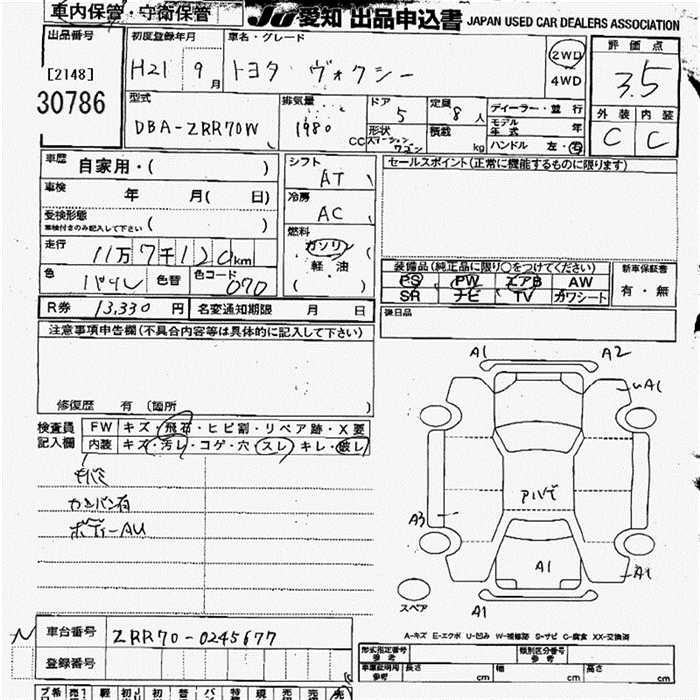 車内保管・守衛保管
JU 愛知 出品申込書 JAPAN USED CAR DEALERS ASSOCIATION
出品番号 初度登録年月 車名・グレード 評価点
[2148] H21 9月 トヨタ ヴォクシー 2WD 4WD 3.5
30786
型式 排気量 ドア 定員 ディーラー・並行 外装 内装
DBA-ZRR70W 1980 CC 5 8人 モデル年式 年 C C
形状 ステーションワゴン 積載 kg ハンドル 左・右
車歴 自家用・( ) シフト AT セールスポイント(正常に機能するものに限ります)
車検 年 月( 日) 冷房 AC
受検形態
車検付きのみ記入して下さい ( ) 燃料 ガソリン
走行 11万7千120km 軽・油
装備品(純正品に限り○をつけてください) 新車保証書
色 色替 色コード 070 ( )
PS PW エアB AW 有・無
SR ナビ TV カワシート
R券 13,330円 名変通知期限 月 日 後日品
注意事項申告欄(不具合内容等は具体的に記入して下さい)
修復歴 有 (箇所 )
検査員記入欄 FW キズ・飛石・ヒビ割・リペア跡・X要
内装 キズ・汚レ・コゲ・穴・スレ・キレ・破レ
カンバン有
ボディーAU
A1 A2
A1
A3
A1 A1
スペア A1
A-キズ E-エクボ U-凹み W-補修跡 S-サビ C-腐食 XX-交換済
車台番号 ZRR70-0245677
登録番号
型式指定番号 参考 類別区分番号 参考
車庫証明用 参考 長さ cm 幅 cm 高さ cm